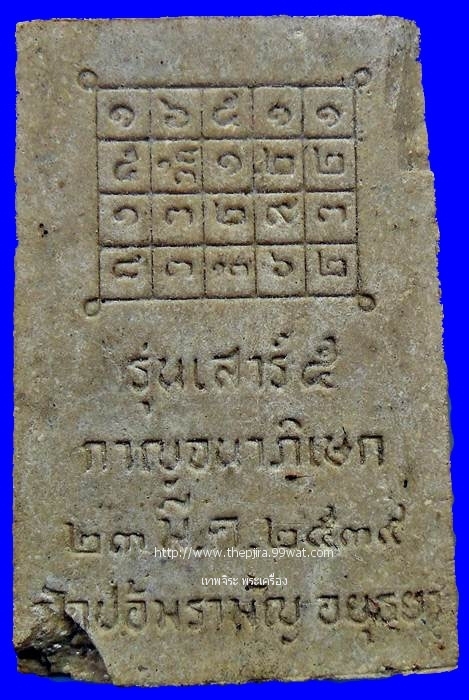 ๑ ๖ ๕ ๑ ๑
๑ ๒ ๒
๑ ๓ ๒ ๙ ๓
๘ ๓ ๖ ๒
รุ่นเสาร์ ๕
กาญจนาภิเษก
๒๓ มี.ค. ๒๕๓๙
http://www.thepjira.99wat.com
เทพจิระ พระเครื่อง
วัดป้อมรามัญ อยุธยา